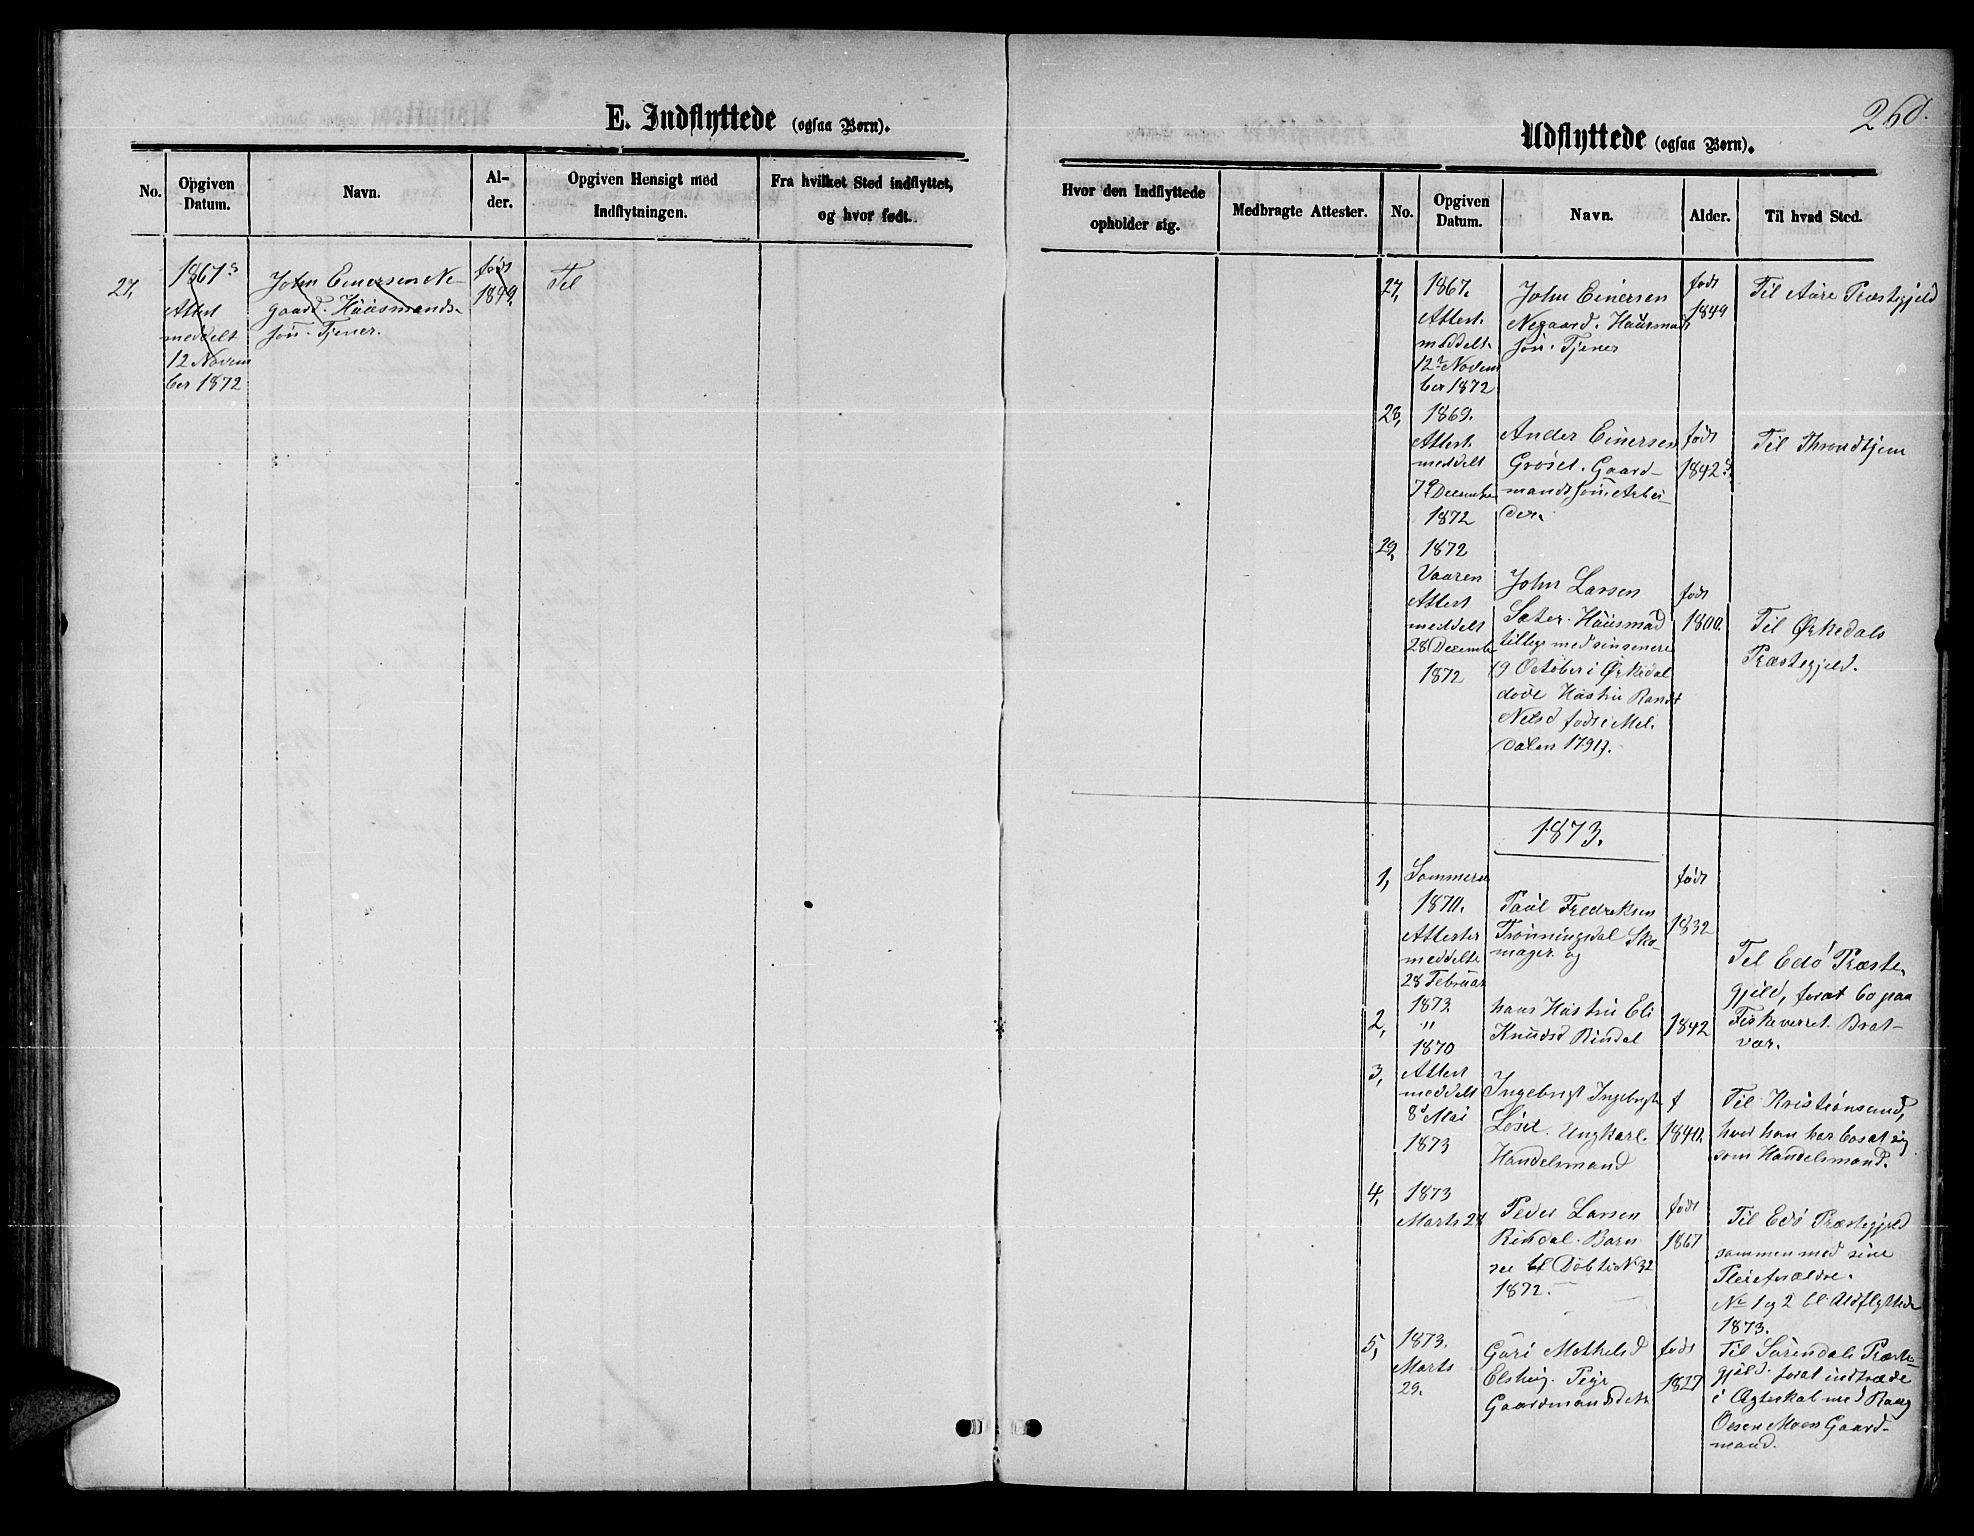 E. Indflyttede (ogsaa Børn).
No.
Opgiven
Datum.
Navn.
Al-
der.
Opgiven Hensigt med
Indflytningen.
Fra hvilket Sted indflyttet,
og hvor født.
27,
1867
Attest
meddelt
12 Novem
ber 1872
John Einersen Ne-
gaard. Huusmands-
søn. Tjener.
født
1849.
Til
260.
Udflyttede (ogsaa Børn).
Hvor den Indflyttede
opholder sig.
Medbragte Attester.
No.
Opgiven
Datum.
Navn.
Alder.
Til hvad Sted.
27,
1867.
Attest.
meddelt
12 Novem
ber 1872
John Einersen
Negaard. Huusmads
søn. Tjener
født
1849
Til Aure Præstegjeld
28,
1869.
Attest.
meddelt
7 December
1872
Ander Einersen
Grøset. Gaard-
mandssøn. Arbei-
der.
født
1842
Til Throndhjem
29,
1872
Vaaren
Attest
meddelt
28 December
1872
John Larsen
Sæter. Huusmad
tillige med sin senere
19 October i Ørkedal
døde Hustru Randi
Nelsd født i Mel-
dalen 1791.
født
1800.
Til Ørkedals
Præstegjeld.
1873.
1,
Sommeren
1870.
Attester
meddelte
28 Februar
1873
Paul Fredriksen
Trønningsdal Sko-
mager. og
født
1832
Til Edø Præste-
gjeld, forat bo paa
Fiskeværret Brat-
vær.
2,
"
1870
hans Hustru Eli
Knudsd Rindal
1842
3,
Attest
meddelt
8d Mai
1873
Ingebrigt Ingebrigts
Løset. Ungkarl.
Handelsmand
f
1840.
Til Kristiansund,
hvor han har bosat sig
som Handelsmand.
4,
1873
Marts 28
Peder Larsen
Rindal. Barn
see bl Døbte N 32
1872.
født
1867
Til Edø Præstegjeld
sammen med sine
Pleieforældre.
No 1 og 2 bl. Udflyttede
1873.
5,
1873.
Marts
29.
Guri Mikkelsd
Pige
Gaardmandsdatt
født
1827
Til Surendals Præste-
gjeld. forat indtræde
i Ægteskab med
Olsen Moen Gaard-
mand.